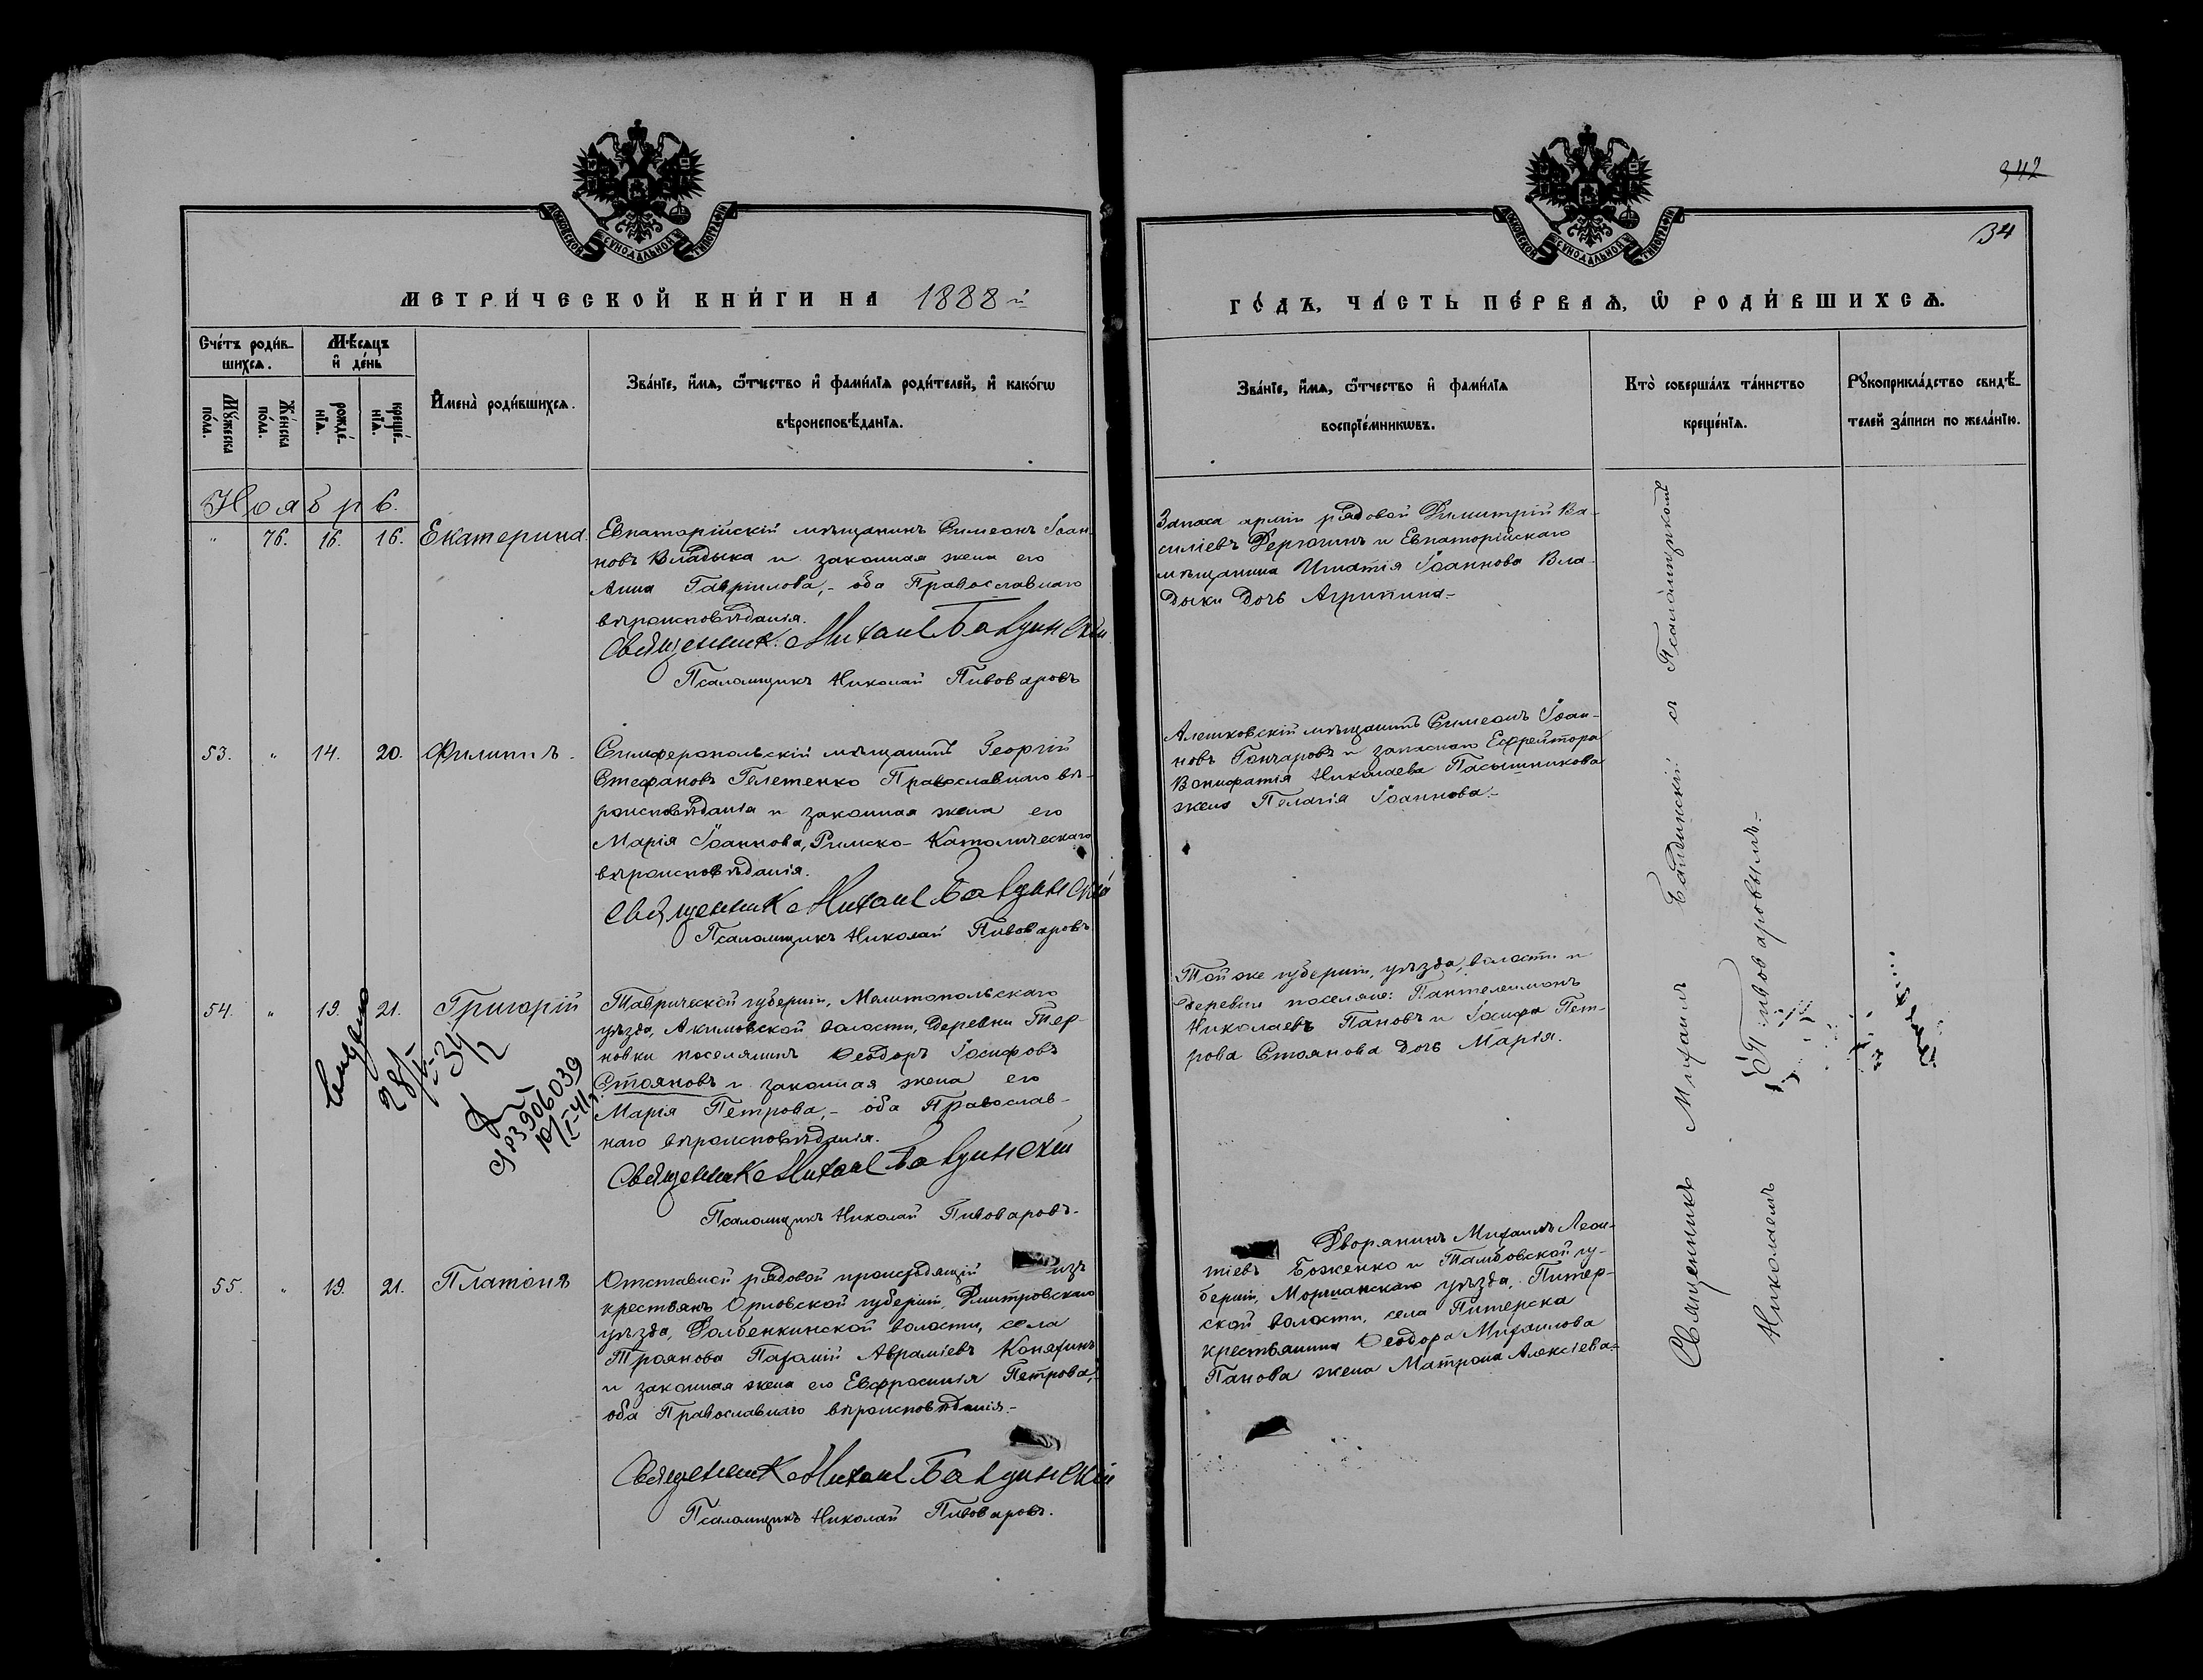 МОСКОВСКОЙ СѴНОДАЛЬНОЙ ТИПОГРАФІИ
МЕТРИ́ЧЕСКОЙ КНИ́ГИ НА 1888 й
Сче́тъ роди́в-
шихсѧ.
Мѣ́сѧцъ
и҆ де́нь
Мꙋ́жеска
по́ла.
Же́нска
по́ла.
рожде́-
нїѧ.
креще́-
нїѧ.
И҆мена̀ роди́вшихсѧ.
Зва́нїе, и҆́мѧ, ѻ҆́тчество и҆ фами́лїѧ роди́телей, и҆ како́гѡ
вѣроисповѣ́данїѧ.
Ноябрь.
" 76. 16. 16. Екатерина
Евпаторійскій мѣщанинъ Симеонъ Іоан-
новъ Владыка и законная жена его
Анна Гавріилова, - оба Православнаго
вѣроисповѣданія.
Священник Михаил Балдинский
Псаломщикъ Николай Пивоваровъ
53. " 14. 20. Филиппъ.
Симферопольскій мѣщанинъ Георгій
Стефановъ Гелетенко Православнаго вѣ-
роисповѣданія и законная жена его
Марія Іоаннова, Римско-Католическаго
вѣроисповѣданія.
Священник Михаил Балдинский
Псаломщикъ Николай Пивоваровъ
54. " 19. 21. Григорій
Таврической губерніи, Мелитопольскаго
уѣзда, Акимовской волости, деревни Тер-
новки поселянинъ Ѳеодоръ Іосифовъ
Стояновъ и законная жена его
Марія Петрова, - оба Православ-
наго вѣроисповѣданія.
Священник Михаил Балдинский
Псаломщикъ Николай Пивоваровъ.
Выдано
55. " 19. 21. Платонъ
Отставной рядовой происходящій изъ
крестьянъ Орловской губерніи, Дмитровскаго
уѣзда, Долбенкинской волости, села
Троянова Пахомій Авраміевъ Коняхинъ
и законная жена его Евфросинія Петрова,
оба Православнаго вѣроисповѣданія.-
Священник Михаил Балдинский
Псаломщикъ Николай Пивоваровъ.
342
34
МОСКОВСКОЙ СѴНОДАЛЬНОЙ ТИПОГРАФІИ
ГО́ДЪ, ЧА́СТЬ ПЕ́РВАѦ, Ѡ҆ РОДИ́ВШИХСѦ.
Зва́нїе, и҆́мѧ, ѻ҆́тчество и҆ фами́лїѧ
воспрїе́мникѡвъ.
Кто̀ соверша́лъ та́инство
креще́нїѧ.
Рꙋкоприкла́дство свидѣ́-
телей за́писи по жела́нїю.
Запаса арміи рядовой Димитрій Ва-
силіевъ Дерюгинъ и Евпаторійскаго
мѣщанина Игнатія Іоаннова Вла-
дыки дочь Агрипина-
Алешковскій мѣщанинъ Симеонъ Іоан-
новъ Гончаровъ и запаснаго Ефрейтора
Вонифатія Николаева Пасышникова
жена Пелагія Іоаннова.-
Той же губерніи, уѣзда, волости и
деревни поселяне: Пантелеимонъ
Николаевъ Пановъ и Іосифа Пет-
рова Стоянова дочь Марія.
Дворянинъ Михаилъ Леон-
тіевъ Боженко и Тамбовской гу-
берніи, Моршанскаго уѣзда, Питер-
ской волости, села Питерска
крестьянина Ѳеодора Михаилова
Панова жена Матрона Алексіева-
Священникъ Михаилъ Балдинскій съ Псаломщикомъ
Николаемъ Пивоваровымъ.-